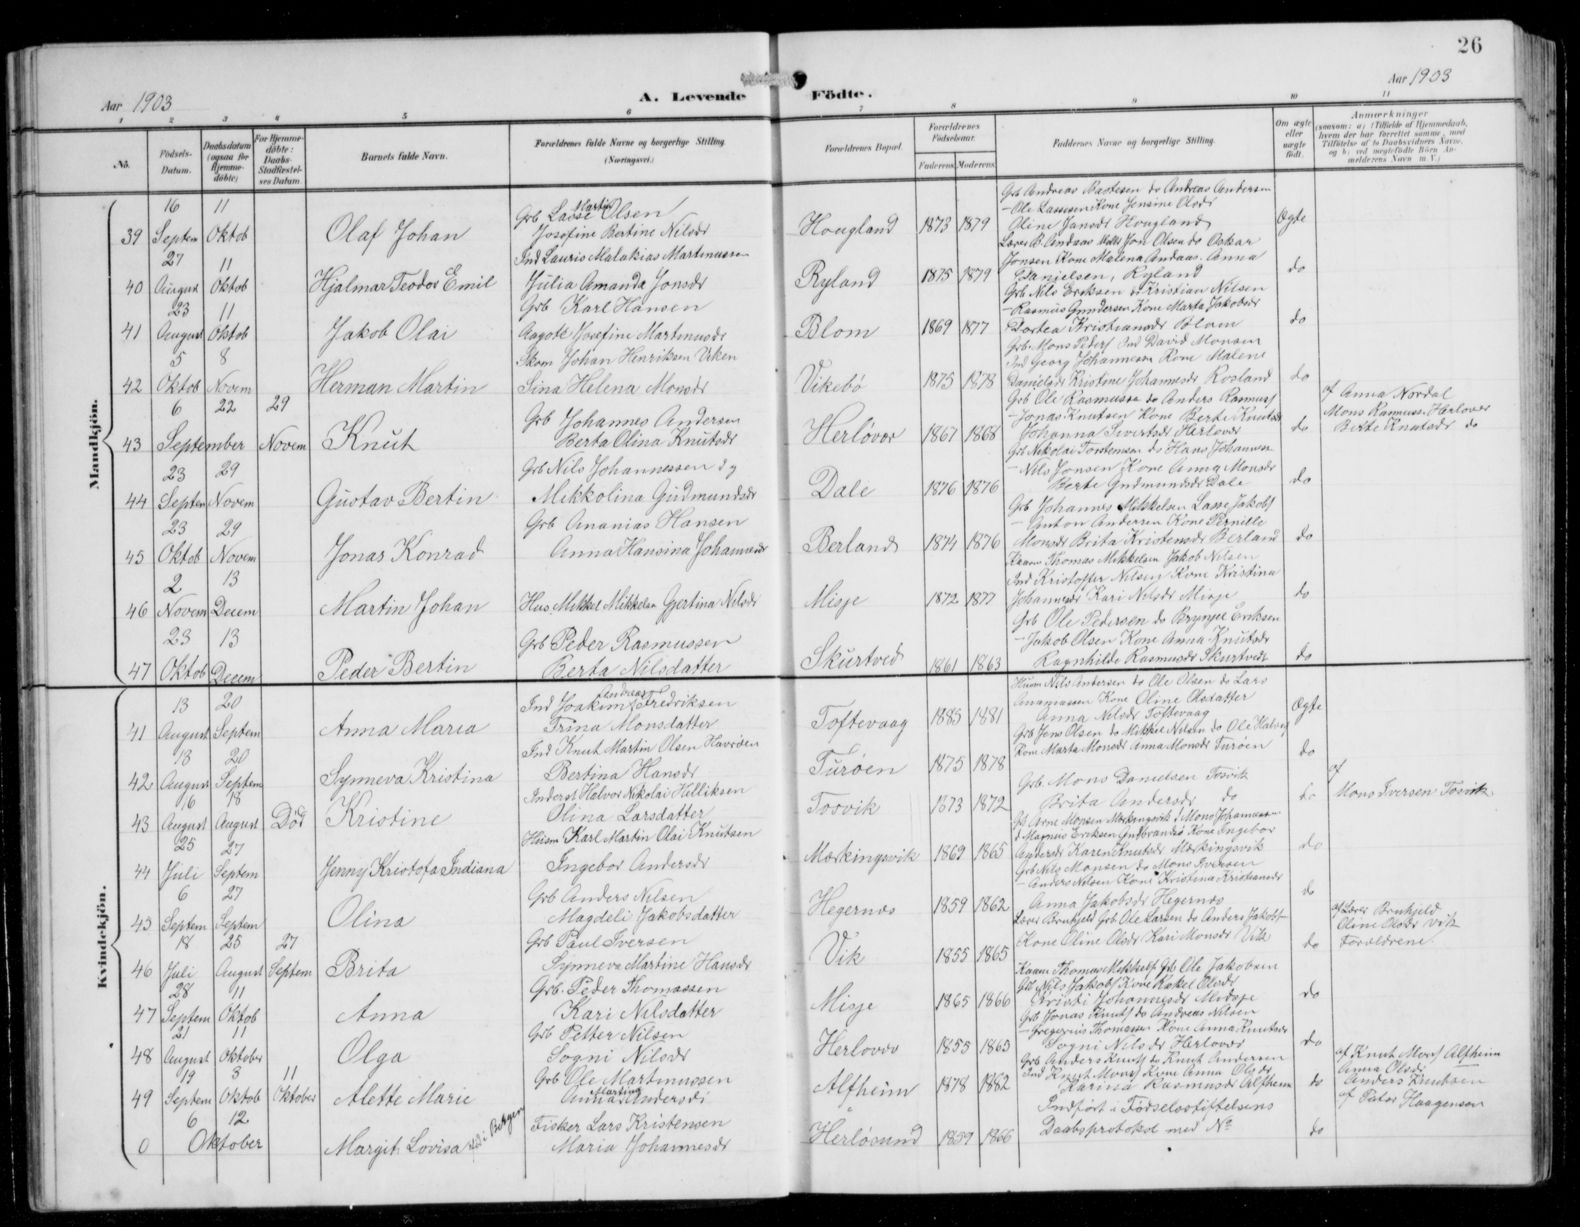 26
Aar 1903
A. Levende Födte.
Aar 1903
1 2 3 4 5 6 7 8 9 10 11
No.
Födsels-Datum.
Daabsdatum (ogsaa for Hjemmedöbte)
For Hjemmedöbte: Daabs-Stadfæstelses Datum.
Barnets fulde Navn.
Forældrenes fulde Navne og borgerlige Stilling (Næringsvei.)
Forældrenes Bopæl.
Forældrenes Födselsaar.
Faderens. Moderens.
Faddernes Navne og borgerlige Stilling.
Om ægte eller uægte födt.
Anmærkninger
Mandkjön.
39 16 Septem 11 Oktob Olaf Johan
Grb Lasse Martin Olsen
Josefine Bertine Nilsdr
Hougland 1873 1879
Grb Andreas Bastesen do Andreas Andersen
Ole Lassesen Kone Jensine Olsdr
Oline Jansdr Hougland
Ægte
40 27 August 11 Oktob Hjalmar Teodor Emil
Ind Lauris Malakias Martinussen
Julia Amanda Jonsdr
Ryland 1875 1879
Jonsen Kone Malena Andaas. Anna
Danielsen, Ryland
do
41 23 August 11 Oktob Jakob Olai
Grb Karl Hansen
Aagote Josefine Martinusdr
Blom 1869 1877
Grb Nils Eriksen do Kristian Nilsen
Rasmus Gundersen Kone Marta Jakobsdr
Dortea Kristiansdr Blom
do
42 5 Oktob 8 Novem Herman Martin
Skom Johan Henriksen Urken
Sina Helena Monsdr
Vikebø 1875 1878
Grb Mons Peders Ind David Monsen
Ind Georg Johannesen Kone Malene
Danielsdr Kristine Johannesdr Rosland
do
43 6 September 22 29 Novem Knut
Grb Johannes Andersen
Berta Olina Knutsdr
Herløvær 1867 1868
Grb Ole Rasmussen do Anders Rasmus
Jonas Knutsen Kone Berte Knutsdr
Johanna Sivertsdr Herlover
do
af Anna Nordal
Mons Rasmuss. Herlover
Berte Knutsdr do
44 23 Septem 29 Novem Gustav Bertin
Grb Nils Johannessen og
Mikkolina Gudmundsdr
Dale 1876 1876
Grb Nikolai Torstensen do Hans Johannsen
Nils Jonsen Kone Anna Monsdr
Berte Gudmundsdr Dale
do
45 23 Oktob 29 Novem Jonas Konrad
Grb Ananias Hansen
Anna Hansina Johannesdr
Berland 1874 1876
Grb Johannes Mikkelsen Lasse Jakobs
Anton Andersen Kone Pernille
Monsdr Brita Kristensdr Berland
do
46 2 Novem 13 Decem Martin Johan
Hus. Mikkel Mikkelsen Gjertina Nilsdr
Misje 1872 1877
Kaarm Thomas Mikkelsen Jakob Nilsen
Ind Kristoffer Nilsen Kone Kristina
Johannesdr Kari Nilsdr Misje
do
47 23 Oktob 13 Decem Peder Bertin
Grb Peder Rasmussen
Berta Nilsdatter
Skurtved 1861 1863
Grb Ole Pedersen do Brynjel Eriksen
Jakob Olsen Kone Anna Knutsdr
Ragnhilde Rasmusdr Skurtvedt
do
Kvindekjön.
41 13 August 20 Septem Anna Maria
Ind Joakim Andreas Fredriksen
Trina Monsdatter
Toftevaag 1883 1881
Husm Nils Andersen do Ole Olsen do Lars
Ananiassen Kone Oline Olsdatter
Anna Nilsdr Toftevaag
Ægte
42 13 August 20 Septem Synneva Kristina
Ind Knut Martin Olsen Havröen
Bertina Hansdr
Turöen 1875 1878
Grb Jens Olsen do Mikkel Nilsen do Ole Halvor
Kone Marta Monsdr Anna Monsdr Turöen
do
43 16 August 18 August Död Kristine
Inderst Halvor Nikolai Hilliksen
Olina Larsdatter
Tosvik 1873 1872
Grb. Mons Danielsen Tosvik
Brita Andersdr do
do
af
Mons Iversen Tosvik
44 25 Juli 27 Septem Jenny Kristofa Indiana
Husm Karl Martin Olai Knutsen
Ingebor Andersdr
Mærkingsvik 1862 1865
Grb Arne Monsen Mærkingsvik Mons Johannesen
Magnus Eriksen Gulbrandsö Kone Ingebor
Andersdr Karen Knutsdr Mærkingsvik
do
45 6 Septem 27 Septem Olina
Grb Anders Nilsen
Magdeli Jakobsdatter
Hegernæs 1859 1862
Grb Nils Monsen do Mons Iversen
Anders Nilsen Kone Kristina Kristiansdr
Anna Jakobsdr Hegernæs
do
46 18 Juli 25 August 27 Septem Brita
Grb Paul Iversen
Synneva Martine Hansdr
Vik 1855 1865
Lærer Brukjeld Grb Ole Larsen do Anders Jakobs
Kone Oline Olsdr Kari Monsdr Vik
do
af Lærer Brukjeld
Oline Olsdr Vik
Forældrene
47 28 Septem 11 Oktob Anna
Grb. Peder Thomassen
Kari Nilsdatter
Misje 1865 1866
Kaarm Thomas Mikkels Grb Ole Jakobsen
Grb Nils Jakobs Kone Rakel Olsdr
Kristi Johannesdr Midsje
do
48 21 August 11 Oktober Olga
Grb Petter Nilsen
Sogni Nilsdr
Herlover 1855 1865
Grb Jonas Knuts do Andreas Nilsen
Gregorius Thomassen Kone Anna Knutsdr
Sogni Nilsdr Herlover
do
49 19 Septem 3 Oktob 11 Oktober Alette Marie
Grb Ole Martinussen
Anna Martina Andersdr
Alfheim 1878 1862
Grb Anders Knuts do Knut Andersen
Ind Knut Mons Kone Anna Olsdr
Karina Rasmusdr Alfheim
do
af Knut Mons Alfheim
Anna Olsdr
Anders Knutsen
af Peter Haagensen
0 6 12 Oktober Margit Lovisa født i Bergen
Fisker Lars Kristensen
Maria Johannesdr
Herlösund 1859 1866
Indfört i Födselsstiftelsens
Daabsprotokol med No
do